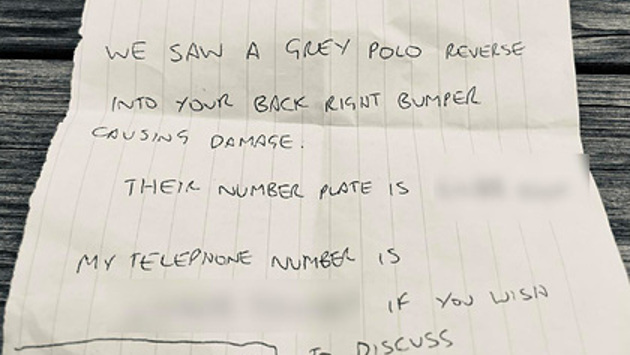 WE SAW A GREY POLO REVERSE
INTO YOUR BACK RIGHT BUMPER
CAUSING DAMAGE.
THEIR NUMBER PLATE IS
MY TELEPHONE NUMBER IS
IF YOU WISH
TO DISCUSS